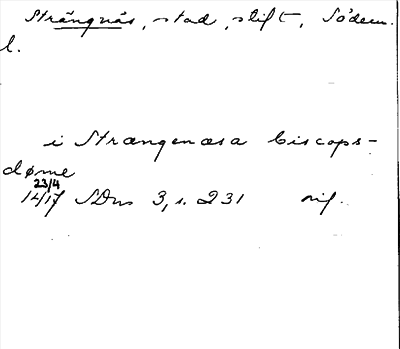 Strängnäs, stad, stift, Söderm.
l.
i Strængenæsa biscops-
døme
23/4
1417 SDns 3, s. 231 orig.